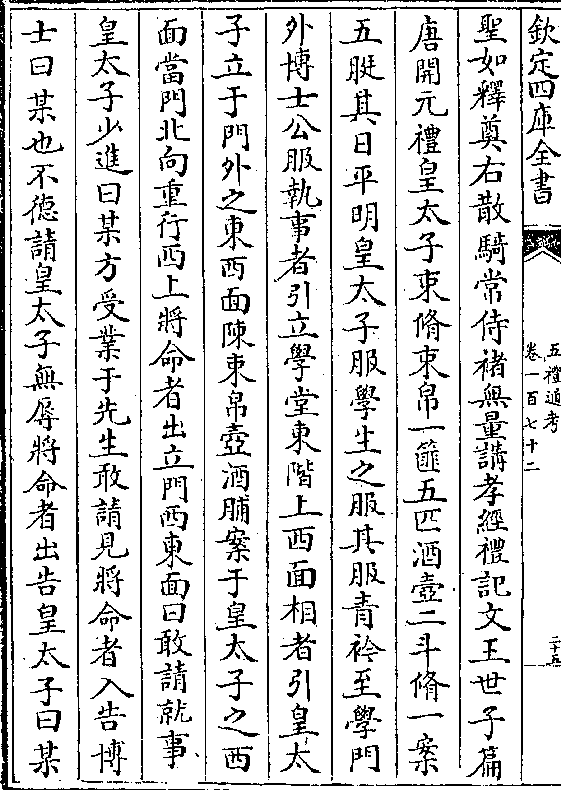 欽定四庫全書
五禮通考
卷一百七十二
二十五
聖如釋奠右散騎常侍褚無量講孝經禮記文王世子篇
唐開元禮皇太子束脩束帛一篚五匹酒壺二斗脩一案
五脡其日平明皇太子服學生之服其服青衿至學門
外博士公服執事者引立學堂東階上西面相者引皇太
子立于門外之東西面陳束帛壺酒脯案于皇太子之西
面當門北向重行西上將命者出立門西東面曰敢請就事
皇太子少進曰某方受業于先生敢請見將命者入告博
士曰某也不德請皇太子無辱將命者出告皇太子曰某